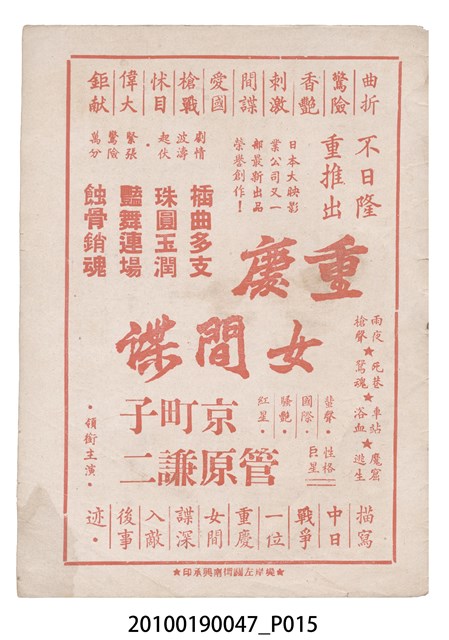 曲折
驚險
香艷
刺激
間諜
愛國
槍戰
怵目
偉大
鉅献
不日隆
重推出
日本大映影
業公司又一
部最新出品
榮譽創作!
劇情
波濤
起伏·
緊張
驚險
萬分
插曲多支
珠圓玉潤
豔舞連場
蝕骨銷魂
重慶
女間諜
雨夜槍聲★死巷驚魂★車站浴血★魔窟逃生
蜚聲·
國際·
騷艷·
紅星·
京町子
性格
巨星
管原謙二
·領銜主演·
描寫
中日
戰爭
一位
重慶
女間
諜深
入敵
後事
迹·
★堤岸左街南興承印★
20100190047_P015